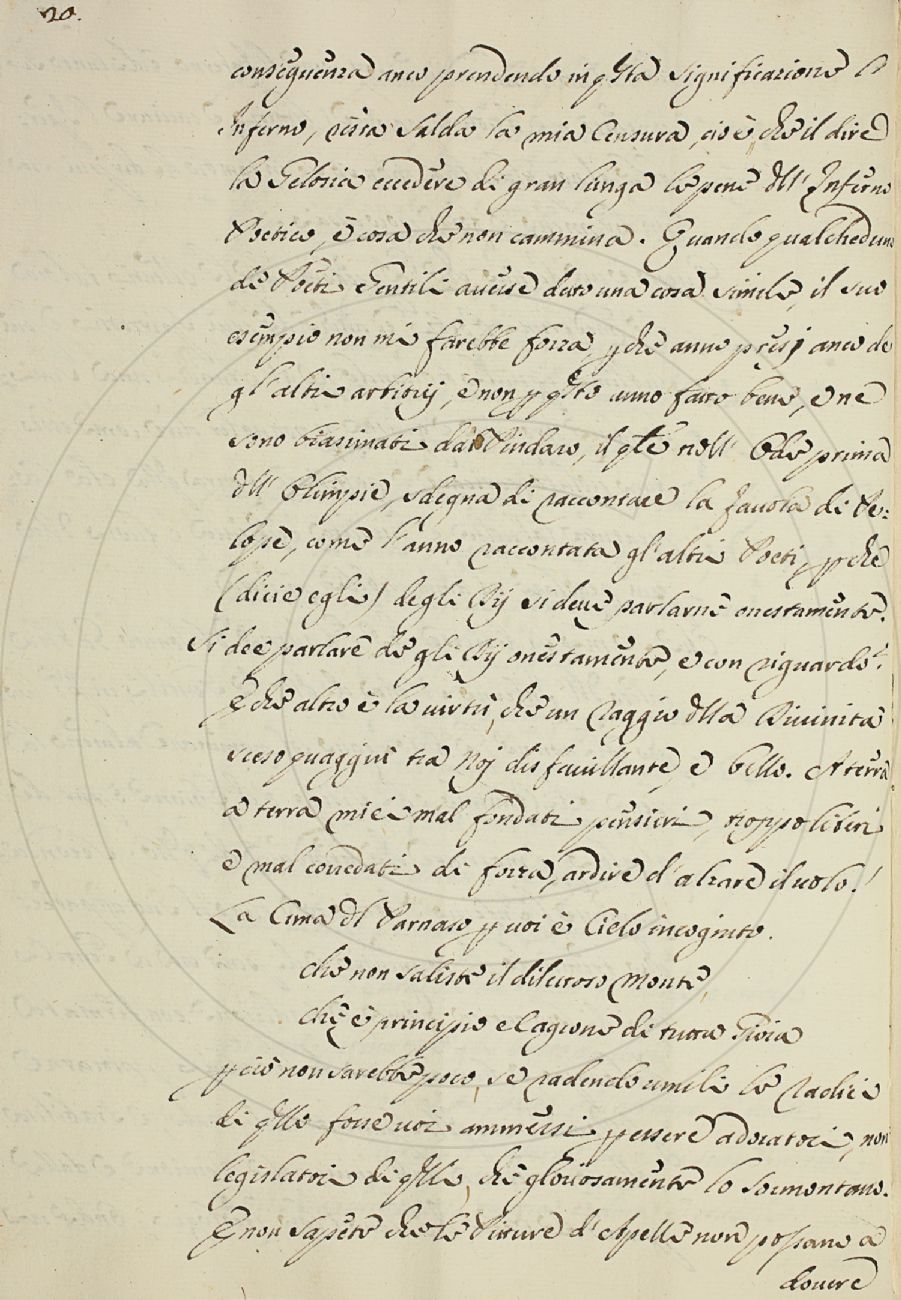 20.
conseguenza anco prendendo in qsta significazione l'
Inferno, resta salda la mia Censura, cio è, che il dire
la Gelosia eccedere di gran lunga le pene dll' Inferno
Poetico, è cosa che non cammina. Quando qualcheduno
de Poeti Gentili avesse detto una cosa simile, il suo
esempio non mi farebbe forza pche anno presi anco de
gl'altri arbitrij, e non p qsto anno fatto bene, e ne
sono biasimati dal Pindaro, il qle nell' Ode prima
dll' Olimpie, sdegna di raccontare la favola di Pe:
lope, come l'anno raccontata gl'altri Poeti, pche
(dicie egli) degli Dij si deve parlarne onestamente.
Si dee parlare de gli Dij onestamente, e con riguardo!
E che altro è la virtù, che un raggio dlla Divinità
sceso quaggiù tra noj disfavillante, e bello. A terra
a terra miei mal fondati pensieri, troppo liberi
e mal corredati di forza, ardire d'alzare il volo!
La Cima dl Parnaso p voi è Cielo incognito.
che non saliste il dilettoso Monte,
che è principio e Cagione di tutta Gioia
pciò non sarebbe poco, se radendo umili le radici
di qllo foste voi ammessi p essere adoratori, non
legislatori di qlli, che gloriosamente lo sormontano.
E non sapete che le Pitture d'Apelle non possano a
dovere